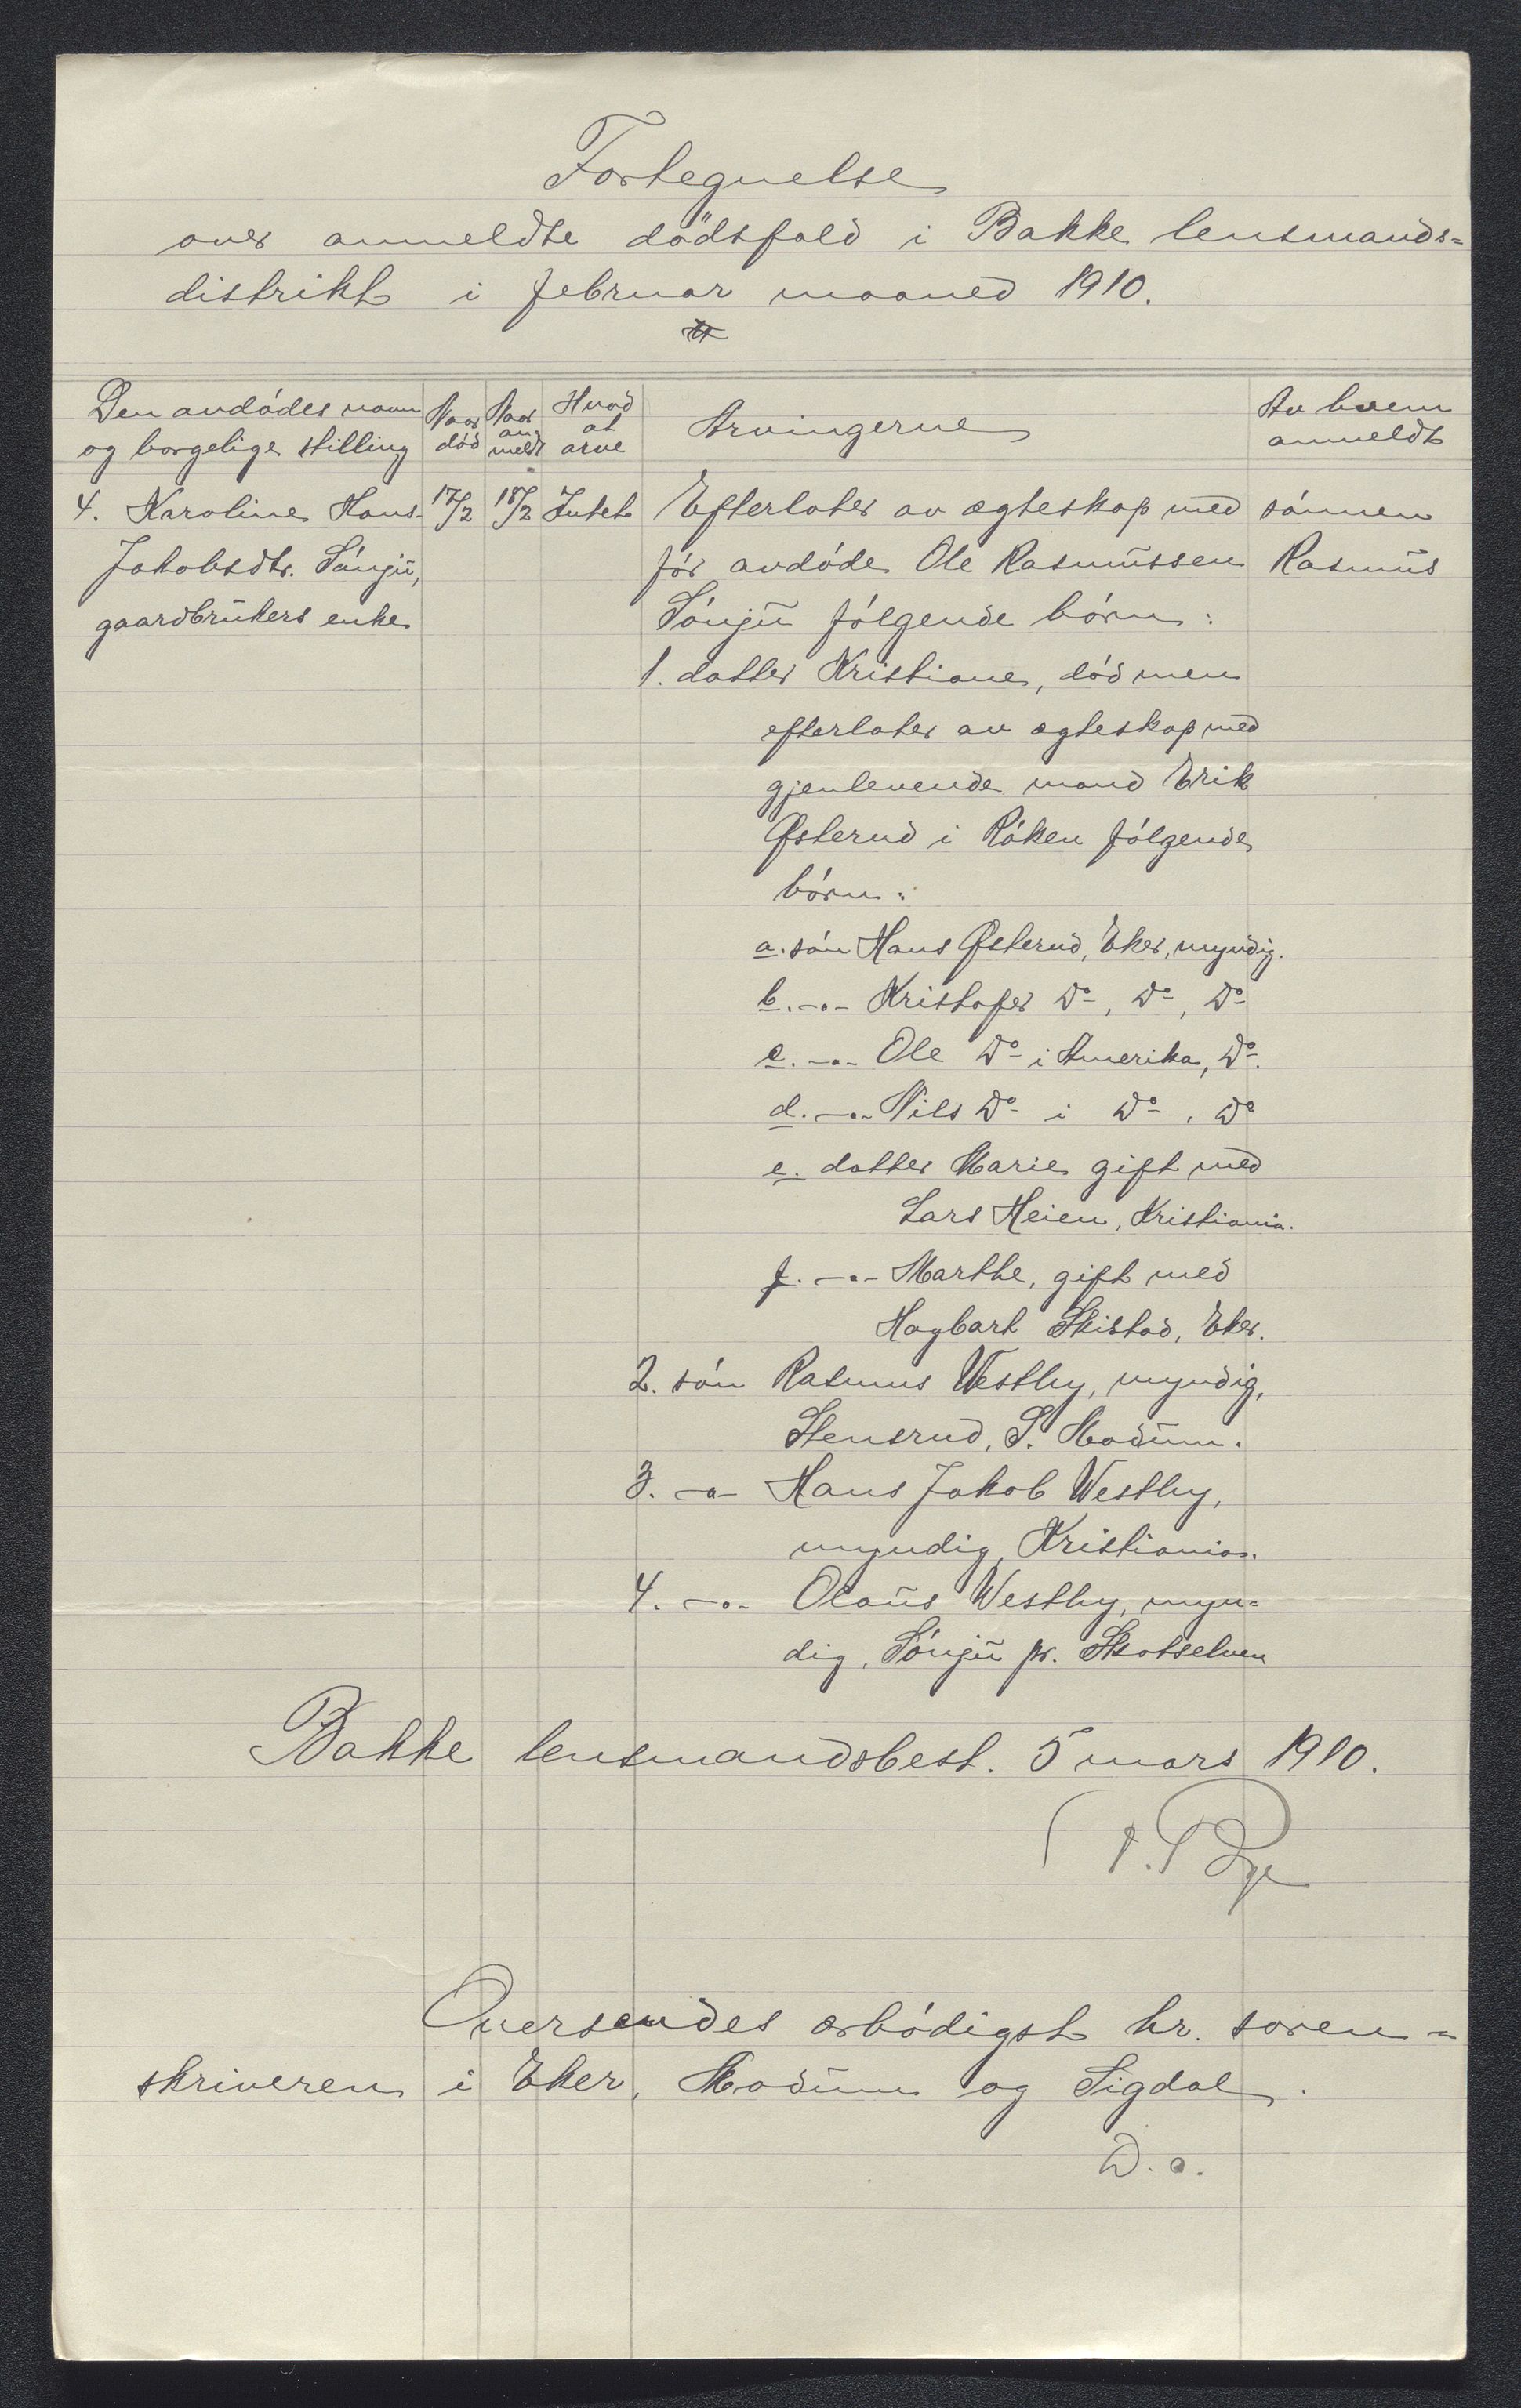 Fortegnelse
over anmeldte dödsfald i Bakke lensmands=
distrikt i februar maaned 1910.
Den avdödes navn og borgelige stilling | Naar död | Naar anmeldt | Hvad at arve | Arvingerne | Av hvem anmeldt
4. Karoline Hans- 17/2 18/2 Intet Efterlater av ægteskap med sönnen
Jakobsdtr. Sönju, för avdöde Ole Rasmussen Rasmus
gaardbrukers enke Sönju fölgende börn:
1. datter Kristiane, död men
efterlater av ægteskap med
gjenlevende mand Erik
Østerud i Röken fölgende
börn:
a. sön Hans Østerud, Eker, myndig.
b. -"- Kristofer Do, Do, Do
c. -"- Ole Do i Amerika, Do.
d. -"- Nils Do i Do, Do
e. datter Marie gift med
Lars Heien, Kristiania.
f. -"- Marthe, gift med
Hagbart Skistad, Eker.
2. sön Rasmus Westby, myndig,
Stensrud, S. Modum.
3. -"- Hans Jakob Westby,
myndig, Kristiania.
4. -"- Olaus Westby, myn=
dig, Sönju pr. Skotselven
Bakke lensmandsbest. 5 mars 1910.
Oversendes ærbödigst hr. soren=
skriveren i Eker, Modum og Sigdal.
D. o.